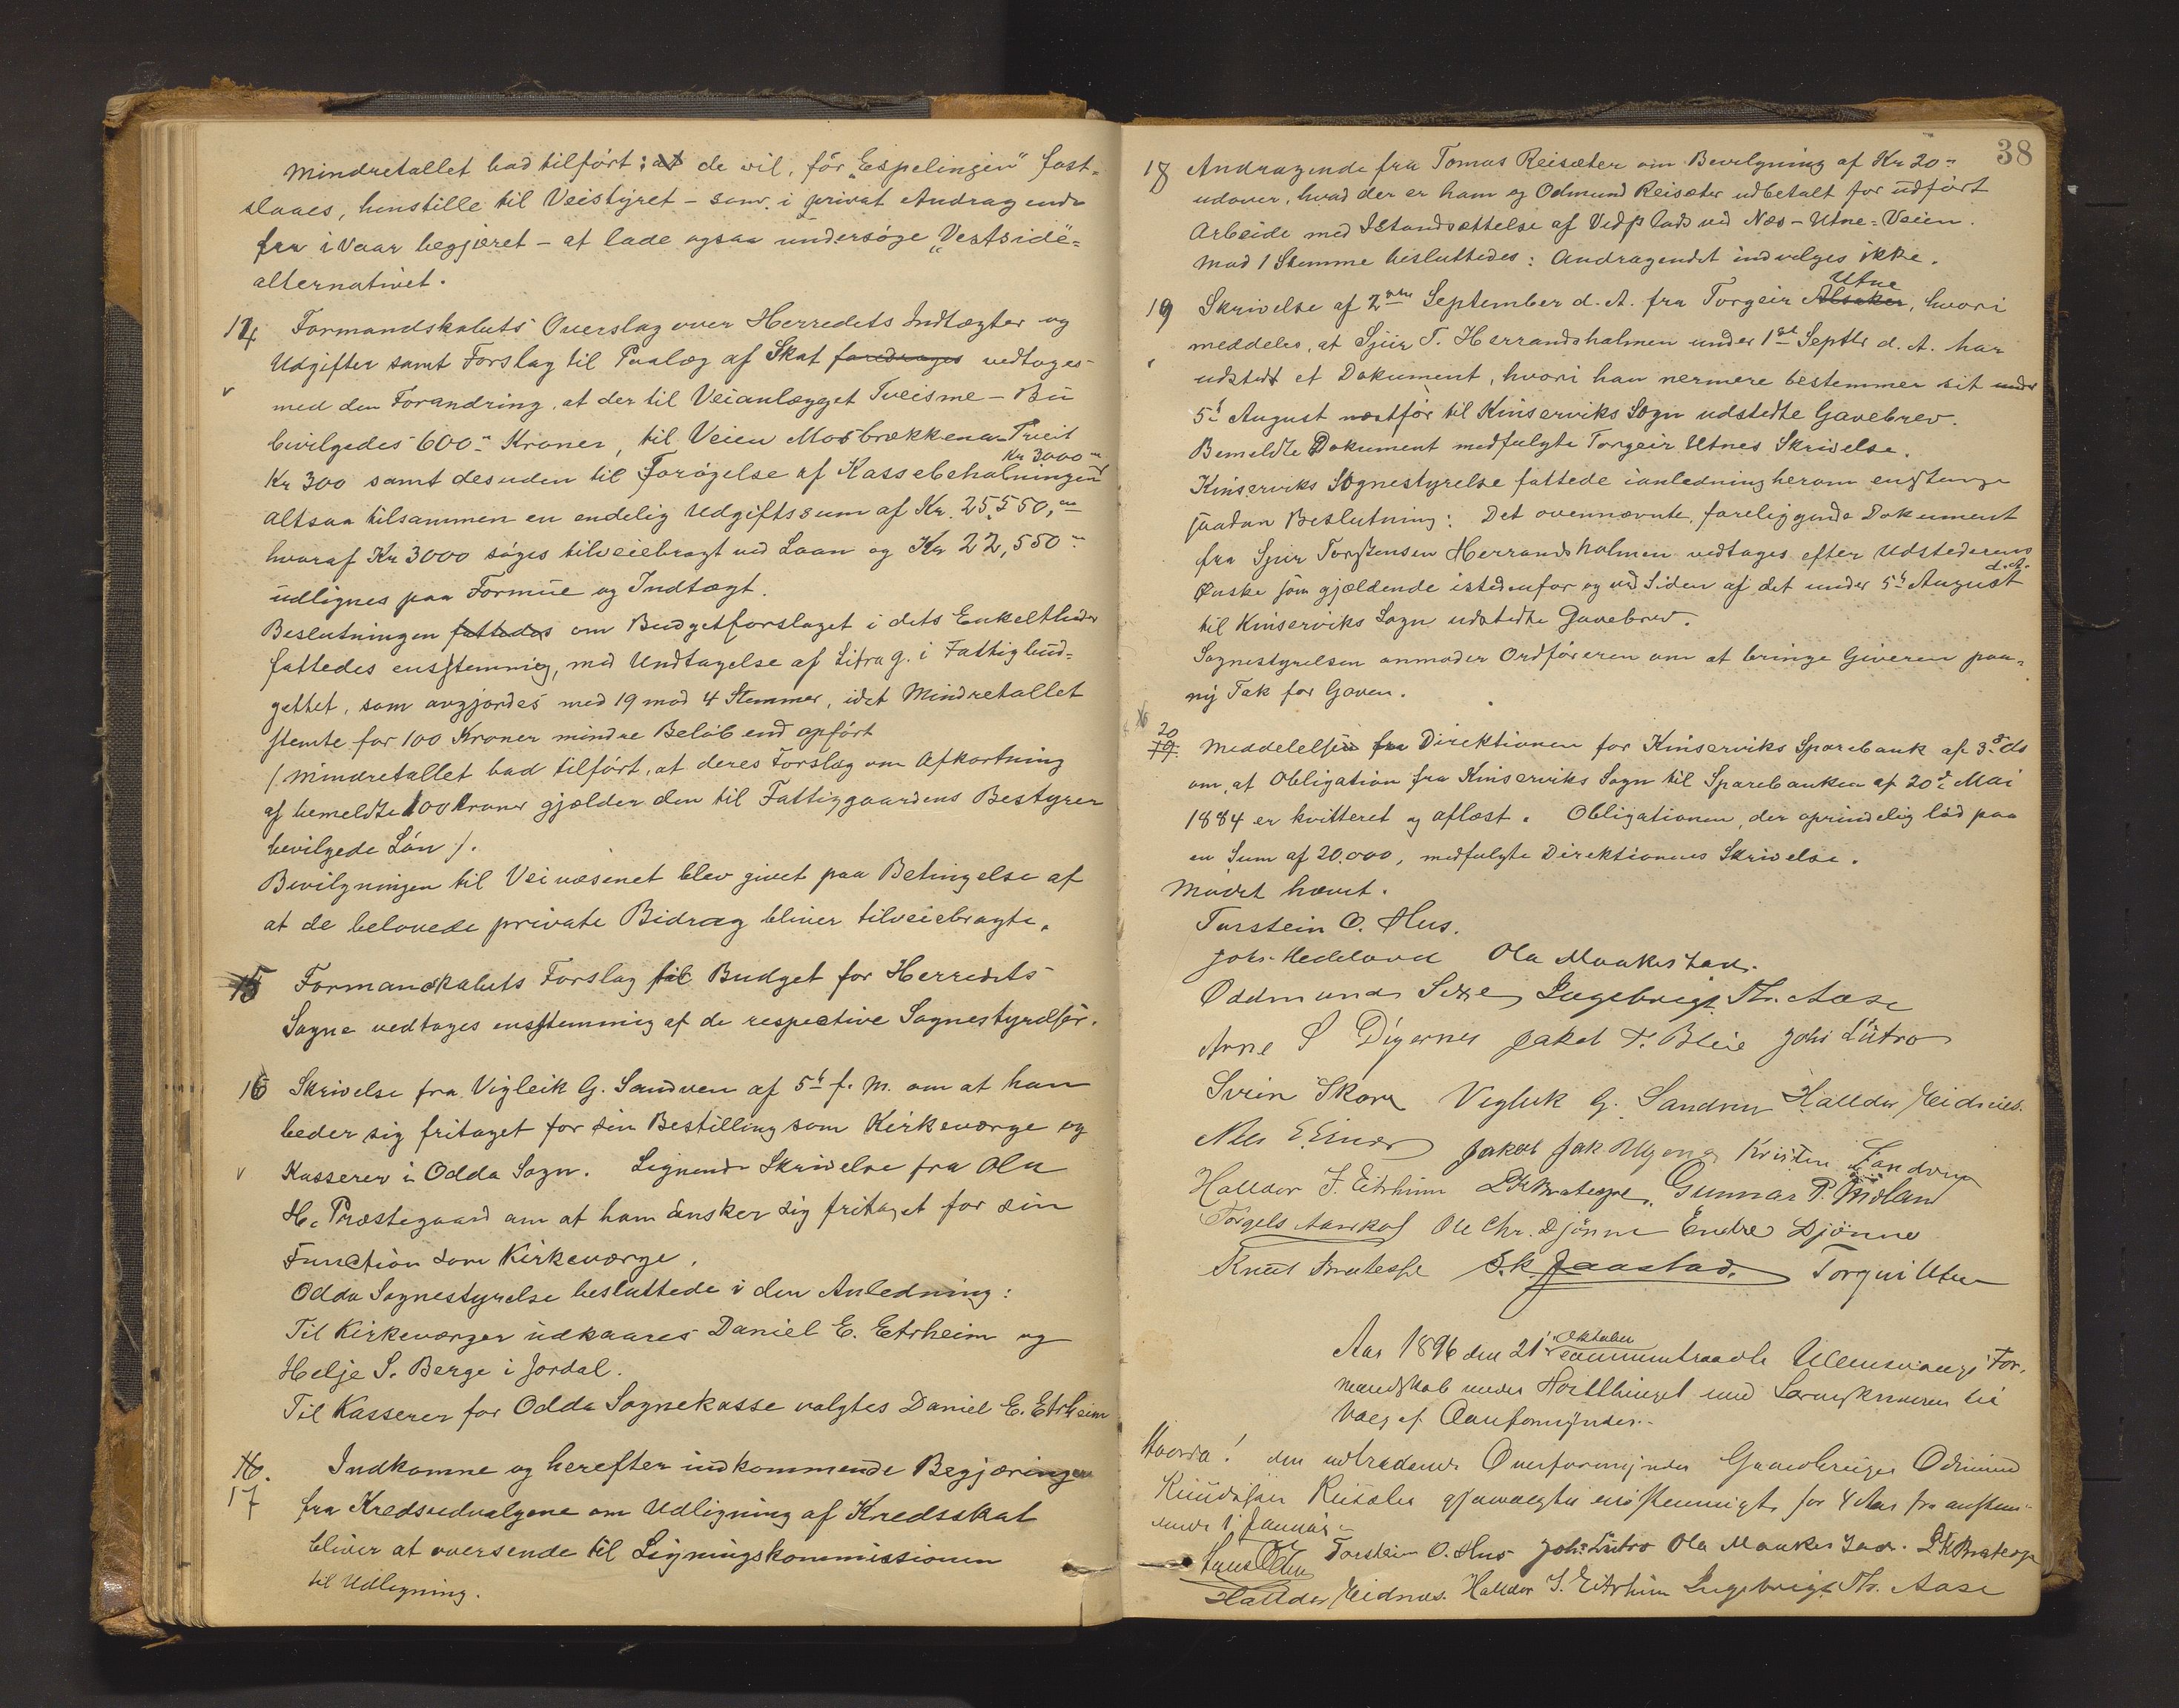 Mindretallet bad tilført: at de vil, før "Espelingen" fast-
slaaes, henstille til Veistyret - som i privat Andragende
fra i Vaar begjæret - at lade ogsaa undersøge "Vestside"-
alternativet.
14 Formandskabets Overslag over Herredets Indtægter og
Udgifter samt Forslag til Paalæg af Skat foredrages vedtoges
v med den Forandring, at der til Veianlægget Tveisme - Bu
bevilgedes 600 Kroner, til Veien Mosbrækkene - Treit
Kr 3000
Kr 300 samt desuden til Forøgelse af Kassebeholningen
altsaa tilsammen en endelig Udgiftssum af Kr. 25,550,
hvoraf Kr 3000 søges tilveiebragt ved Laan og Kr 22,550
udlignes paa Formue og Indtægt.
Beslutningen fattedes om Budgetforslaget i dets Enkeltheder
fattedes enstemmig, med Undtagelse af Litra g. i Fattigbud-
gettet, som avgjordes med 19 mod 4 Stemmer, idet Mindretallet
stemte for 100 Kroner mindre Beløb end opført
/ Mindretallet bad tilført, at deres Forslag om Afkortning
af bemeldte 100 Kroner gjælder den til Fattiggaardens Bestyrer
bevilgede Løn /.
Bevilgningen til Veivæsenet blev givet paa Betingelse af
at de belovede private Bidrag bliver tilveiebragte.
15 Formandskabets Forslag til Budget for Herredets
Sogne vedtoges enstemmig af de respective Sognestyrelser.
16 Skrivelse fra Vigleik G. Sandven af 5t f. M. om at han
beder sig fritaget for sin Bestilling som Kirkeværge og
v Kasserer i Odda Sogn. Lignende Skrivelse fra Ola
H. Præstegaard om at han ønsker sig fritaget for sin
Function som Kirkeværge.
Odda Sognestyrelse besluttede i den Anledning:
Til Kirkeværger udkaares Daniel E. Etrheim og
Helje S. Berge i Jordal.
Til Kasserer for Odda Sognekasse valgtes Daniel E. Etrheim
16. Indkomne og herefter indkommende Begjæringer
17 fra Kredsudvalgene om Udligning af Kredsskat
bliver at oversende til Ligningskommissionen
til Udligning.
38
18 Andragende fra Tomas Reisæter om Bevilgning af Kr 20
udover, hvad der er ham og Odmund Reisæter udbetalt for udført
Arbeide med Istandsættelse af Vedplads ved Næs - Utne-Veien.
Mod 1 Stemme besluttedes: Andragendet indvilges ikke.
Utne
19 Skrivelse af 2den September d. A. fra Torgeir Alsaker, hvori
meddeles, at Sjur T. Herrandsholmen under 1st Septbr d. A. har
udstedt et Dokument, hvori han nermere bestemmer sit under
5t August næstfør til Kinserviks Sogn udstedte Gavebrev.
Bemeldte Dokument medfulgte Torgeir Utnes Skrivelse.
Kinserviks Sognestyrelse fattede i anledning herom enstemmig
saadan Beslutning: Det ovennævnte, foreliggende Dokument
fra Sjur Torstensen Herrandsholmen vedtages efter Udstederens
d. A.
Ønske som gjældende istedenfor og ved Siden af det under 5t August
til Kinserviks Sogn udstedte Gavebrev.
Sognestyrelsen anmoder Ordføreren om at bringe Giveren paa-
ny Tak for Gaven.
20
19. Meddelelsen fra Direktionen for Kinserviks Sparebank af 3d ds
om, at Obligation fra Kinserviks Sogn til Sparebanken af 20d Mai
1884 er kvitteret og aflæst. Obligationen, der oprindelig lød paa
en Sum af 20,000, medfulgte Direktionens Skrivelse.
Mødet hævet.
Torstein O. Hus.
Johs. Hedeland Ola Maakestad.
Oddmund Sexe Ingebrigt Th. Aase
Arne S Digernes Jakob T. Bleie Johs Lutro
Svein Skare Vigleik G. Sandven Halldor Eidnæs.
Nils E Einar Jakob Jak Ulgenes Kristen Sandven
Halldor J. Eitrheim L K Bratespe. Gunnar P. Midland
Torgels Aarskog Ole Chr. Djønne Endre Djønne
Knut Bratespe S. K. Jaastad. Torgeir Utne
Oktober
Aar 1896 den 21 sammentraadte Ullensvangs For-
mandskab under Hosttinget med Sorenskriveren til
Valg af Overformynder.
Hvorda! den udtrædende Overformynder Gaardbruger Odmund
Knudsen Reisæter gjenvalgtes enstemmigt for 4 Aar fra anstun-
dende 1 Januar
Torstein O. Hus Johs Lutro Ola Maakestad. L K Bratespe
Halldor Eidnæs. Halldor J. Eitrheim Ingebrigt Th. Aase